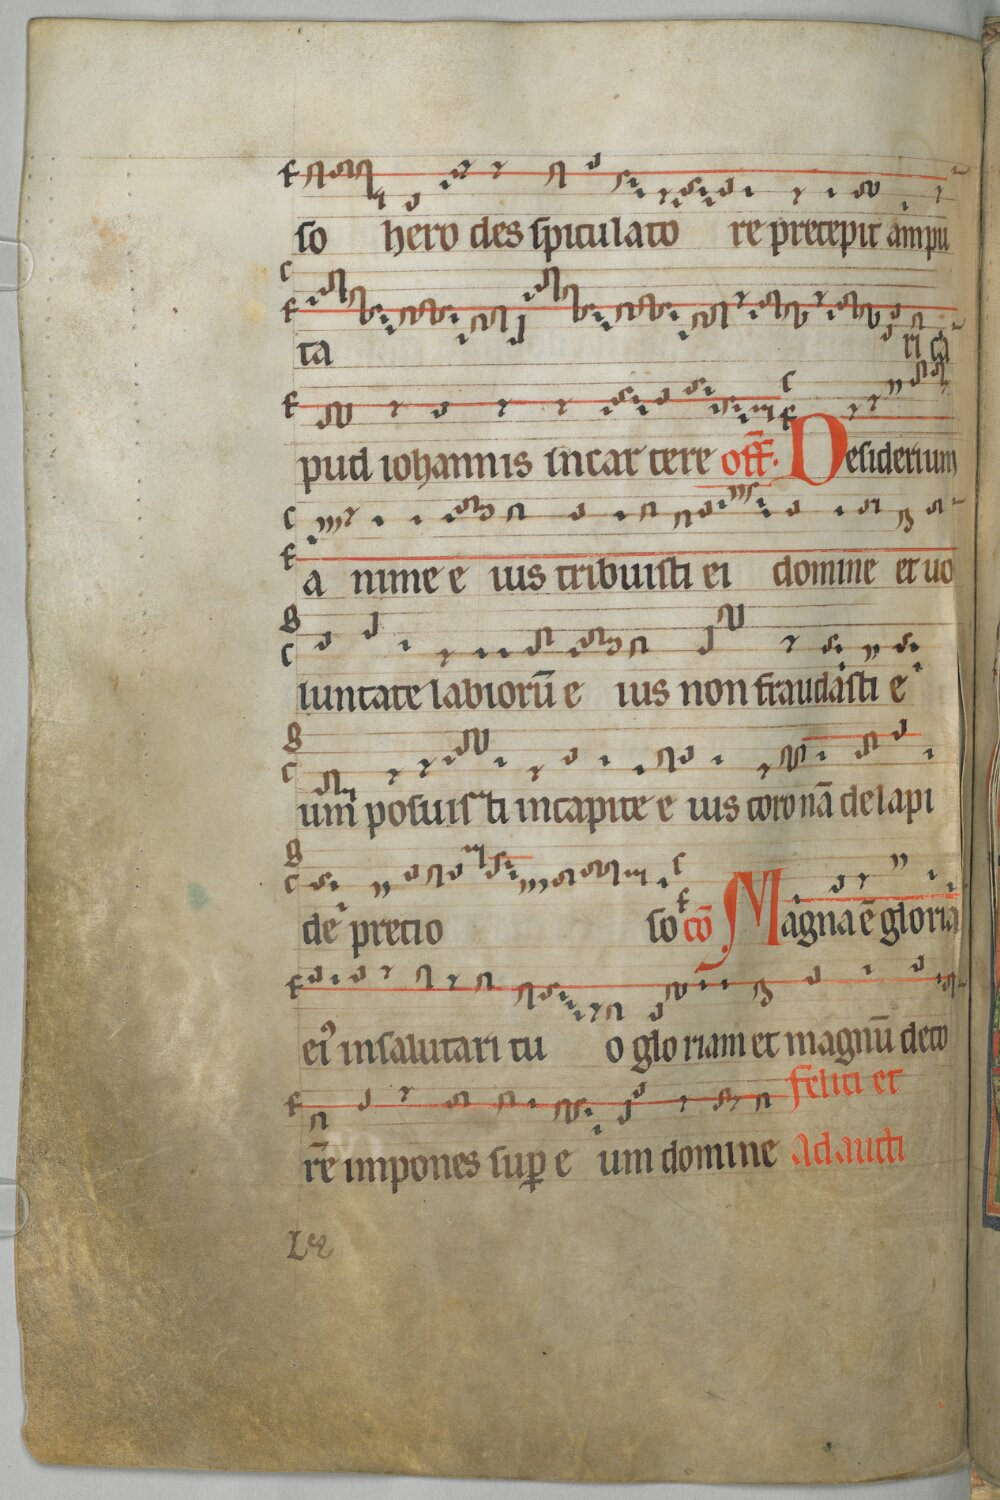 so herodes spiculatore precepit ampu
ta ri ca
pud iohannis in carcere off̄. Desiderium
anime eius tribuisti ei domine et uo
luntate labiorū eius non fraudasti e
um posuisti in capite eius coronā de lapi
de precioso cō Magna ē gloria
ei9 in salutari tuo gloriam et magnū deco
rē impones sup eum domine felici et
adaucti